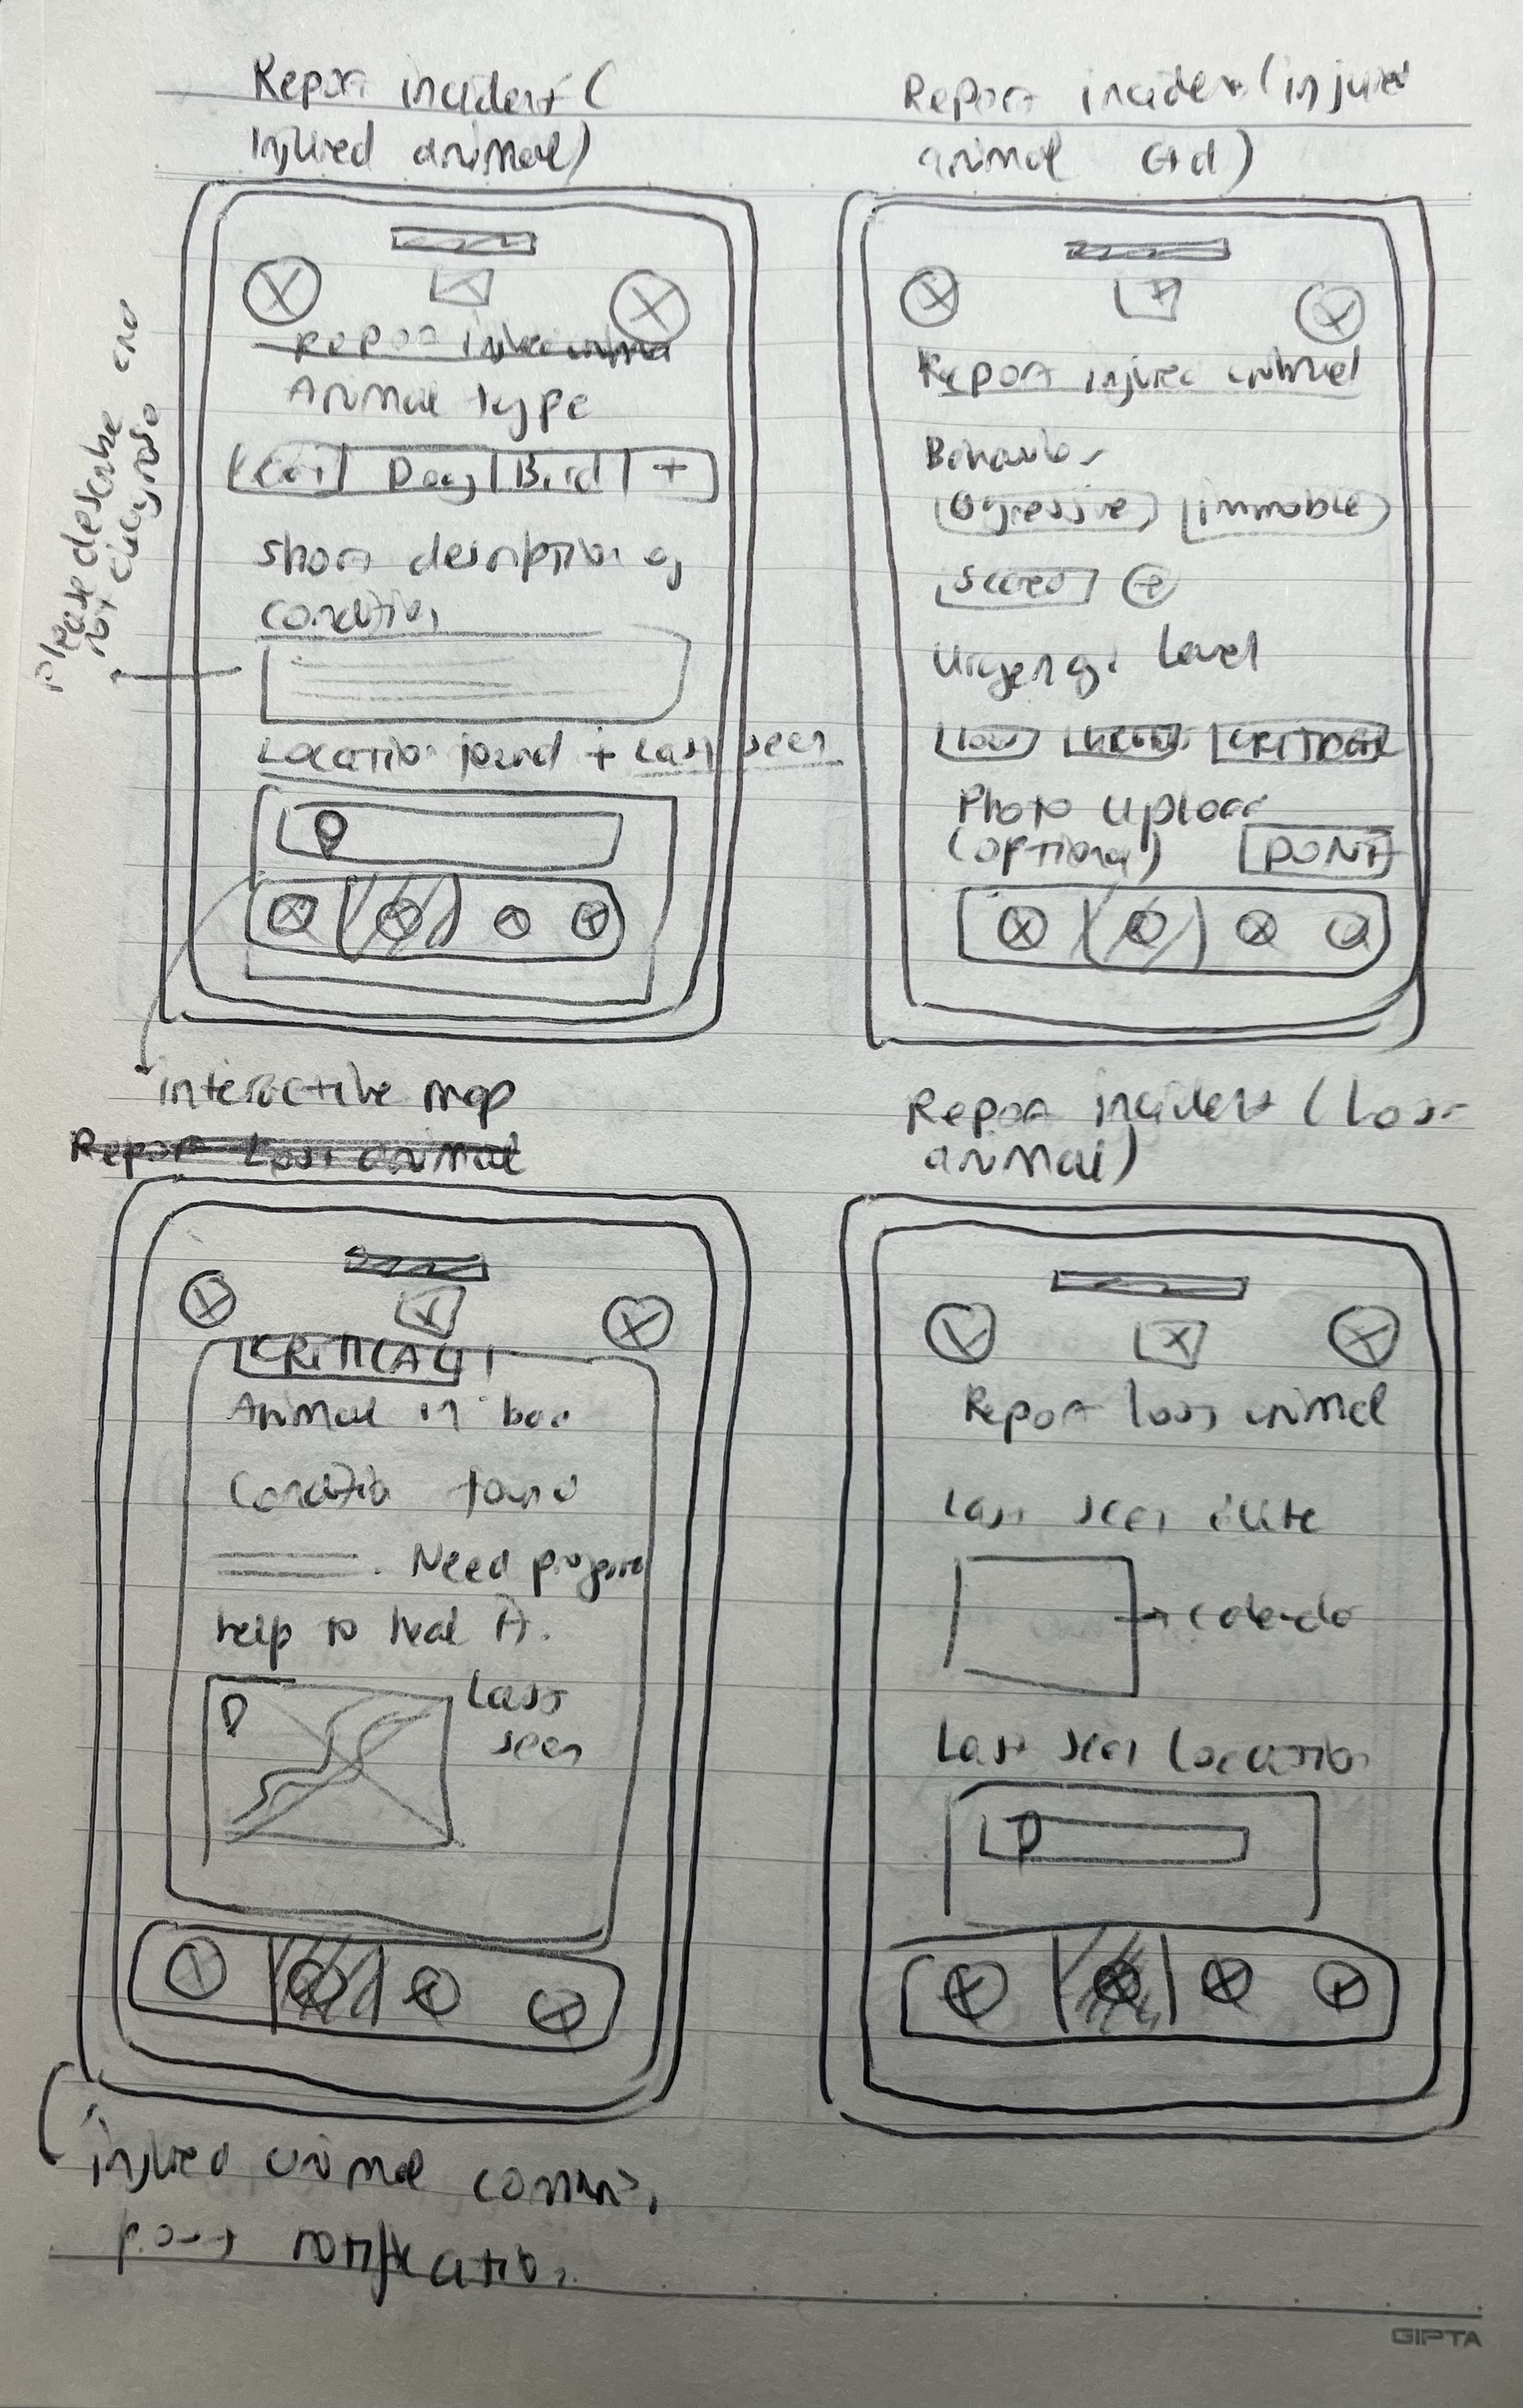 Report incident (
Injured animal)
Animal type
Cat Dog Bird +
Short description of
condition
Please describe and
not diagnose
Location found + Last seen
interactive map
Report incident (injured
animal
Report injured animal
Behavior
Agressive immobile
Scared +
Urgency Level
Low CRITICAL
Photo Upload
(optional) DONE
Report Lost animal
CRITICAL
Animal in bad
Condition found
. Need
help to heal it.
Last
seen
injured animal
post notification
Report incident (Loss
animal)
Report loss animal
Last seen date
Last seen Location
GIPTA